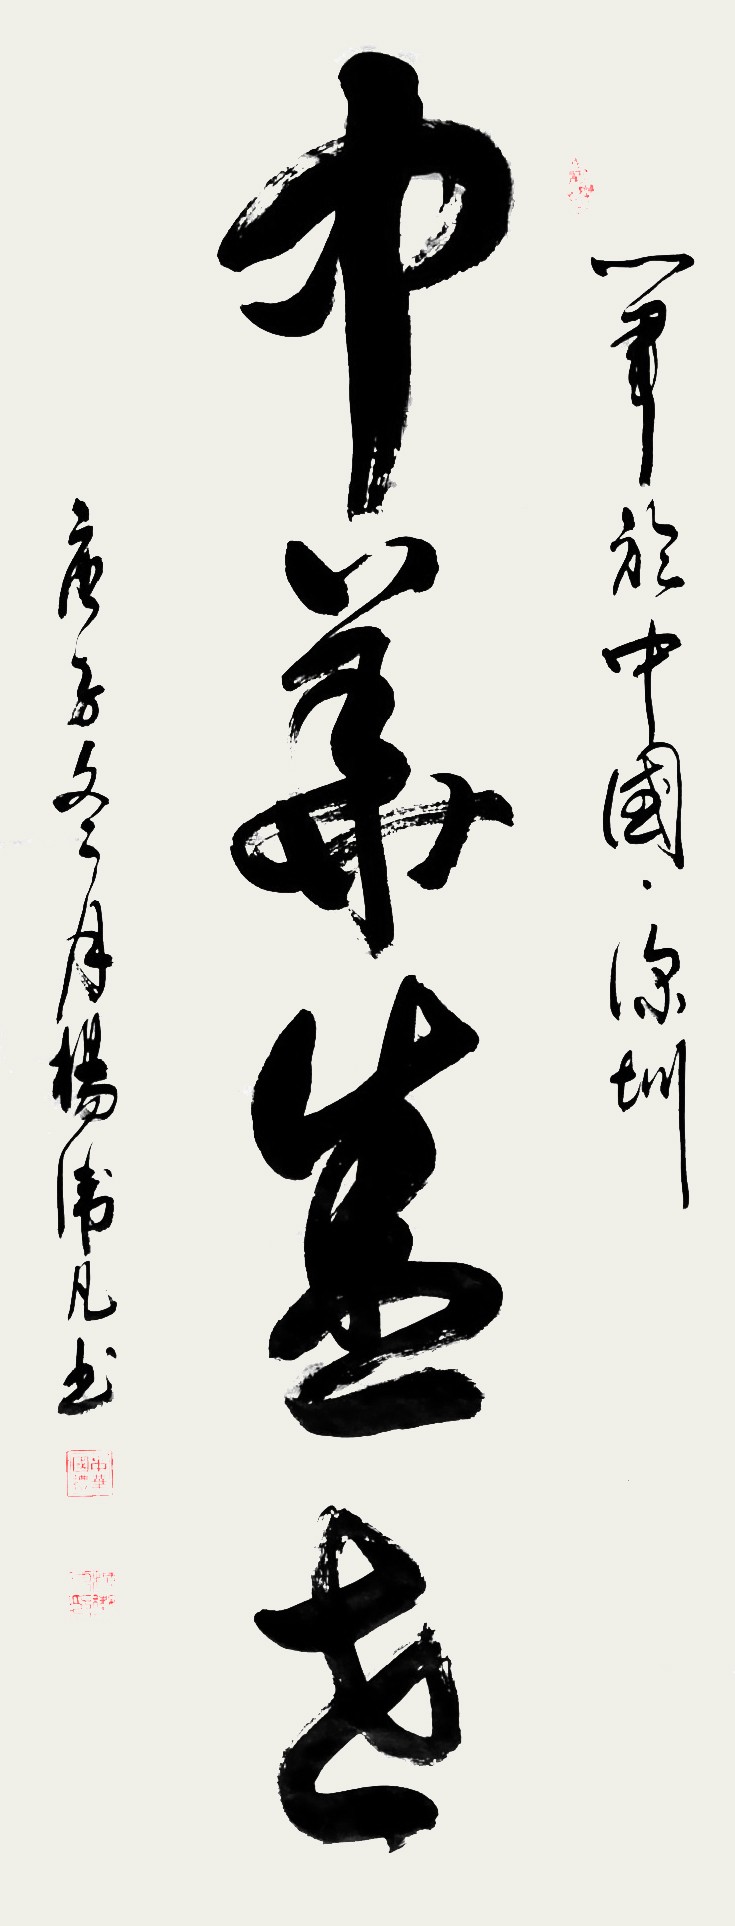 筆於中國·深圳
中華盛世
庚子冬月楊沛凡书